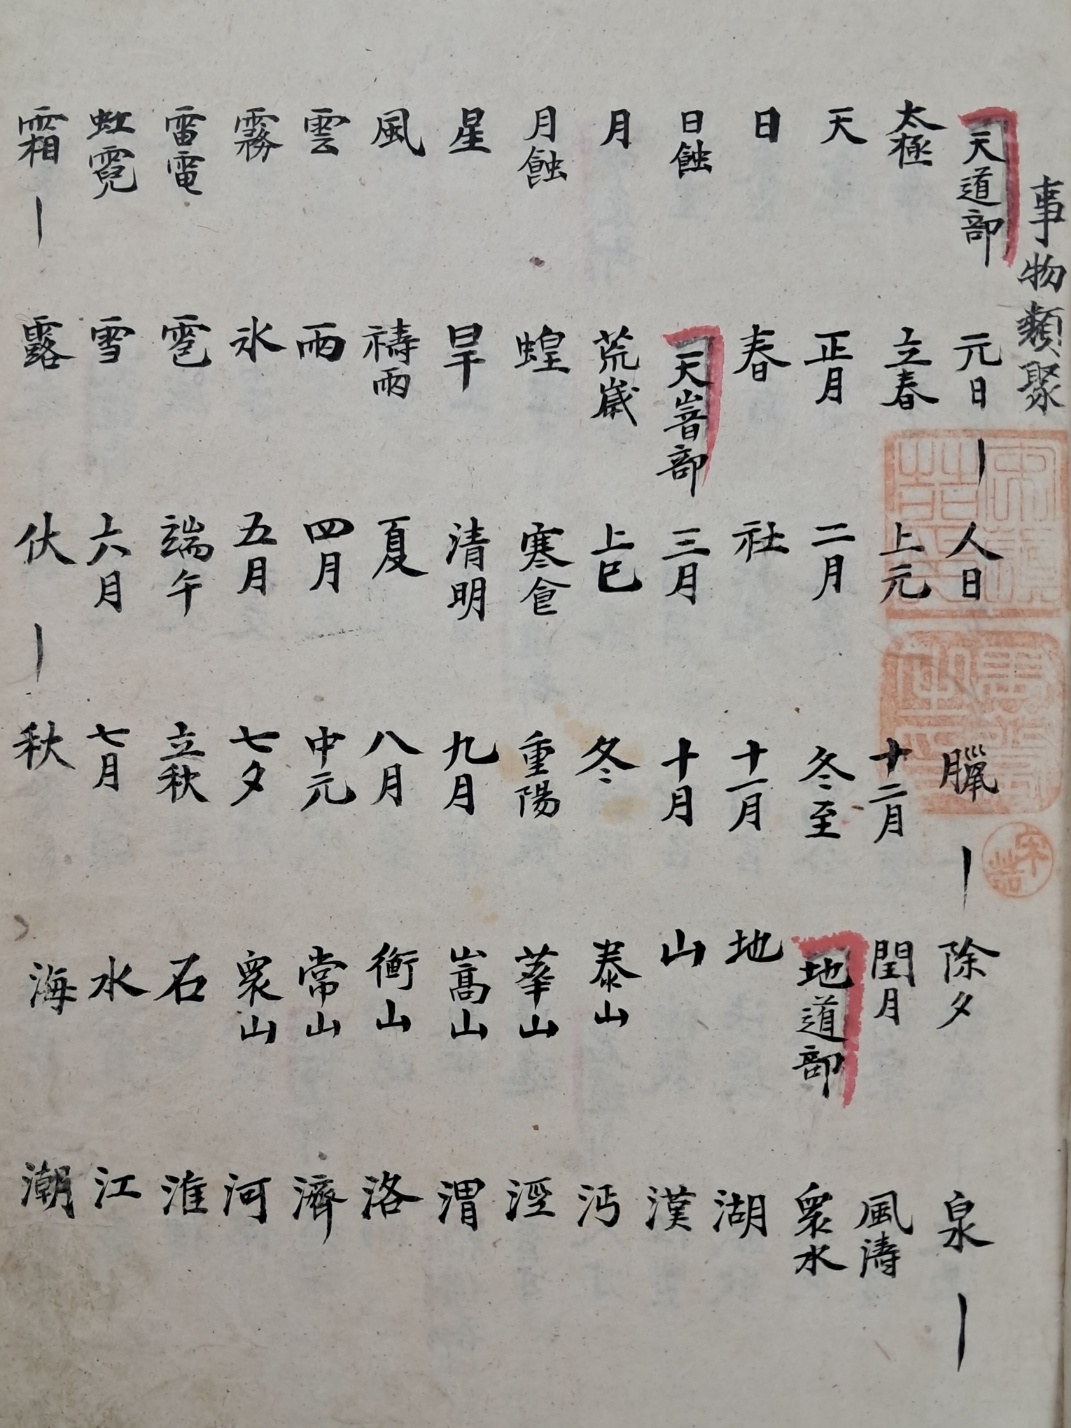 事物類聚
天道部 太極 天 日 日蝕 月 月蝕 星 風 雲 霧 雷電 虹霓 霜
露 雪 雹 氷 雨 禱雨 旱 蝗 荒歲 天峕部 春 正月 立春 元日
人日 上元 二月 社 三月 上巳 寒食 清明 夏 四月 五月 端午 六月 伏
秋 七月 立秋 七夕 中元 八月 九月 重陽 冬 十月 十一月 冬至 十二月 臘
除夕 閏月 地道部 地 山 泰山 華山 嵩山 衡山 常山 衆山 石 水 海
潮 江 淮 河 濟 洛 渭 涇 沔 漢 湖 衆水 風濤 泉